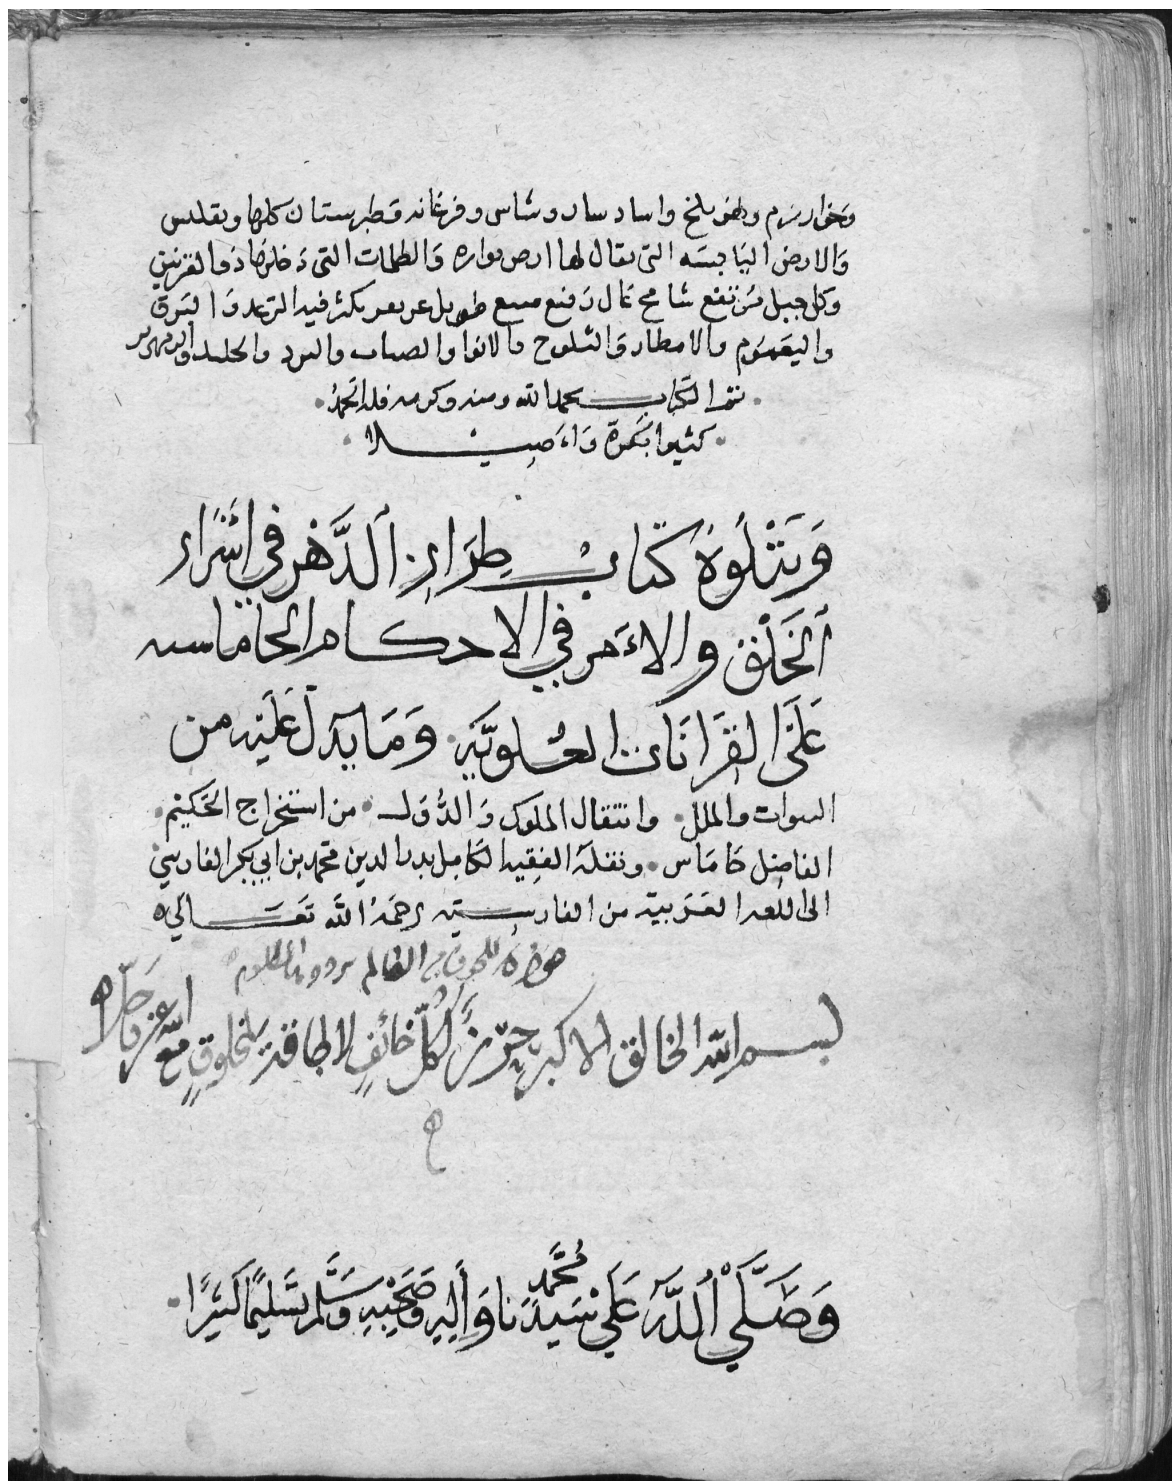 وخوارزم وبلخ وشاس وفرغانه وطبرستان كلها وتفليس
والارض اليابسه التى يقال لها ارض والظلمات التى دخلها ذو القرنين
وكل جبل مرتفع شامخ عال رفيع منيع طويل عريض يكثر فيه الرعد والبرق
واليغموم والامطار والثلوج والانوا والضباب والبرد والجليد والزمهرير
تم الكتاب بحمد الله ومنه وكرمه فله الحمد
كثيرا بكرة واصيلا
ويتلوه كتاب طراز الدهر في اسرار
الخلق والامر في الاحكام الجاماسيه
على القرانات العلوية وما يدل عليه من
النبوات والملل وانتقال الملوك والدول من استخراج الحكيم
الفاضل جاماس ونقله الفقيه الكامل بدر الدين محمد بن ابي بكر الفارسي
الى اللغه العربية من الفارسيته رحمه الله تعالى
الظالم
بسم الله الخالق الاكبر حرز لكل خائف لا طاقة لمخلوق مع الله عز وجل
وصلى الله على سيدنا محمد واله وصحبه وسلم تسليما كثيرا